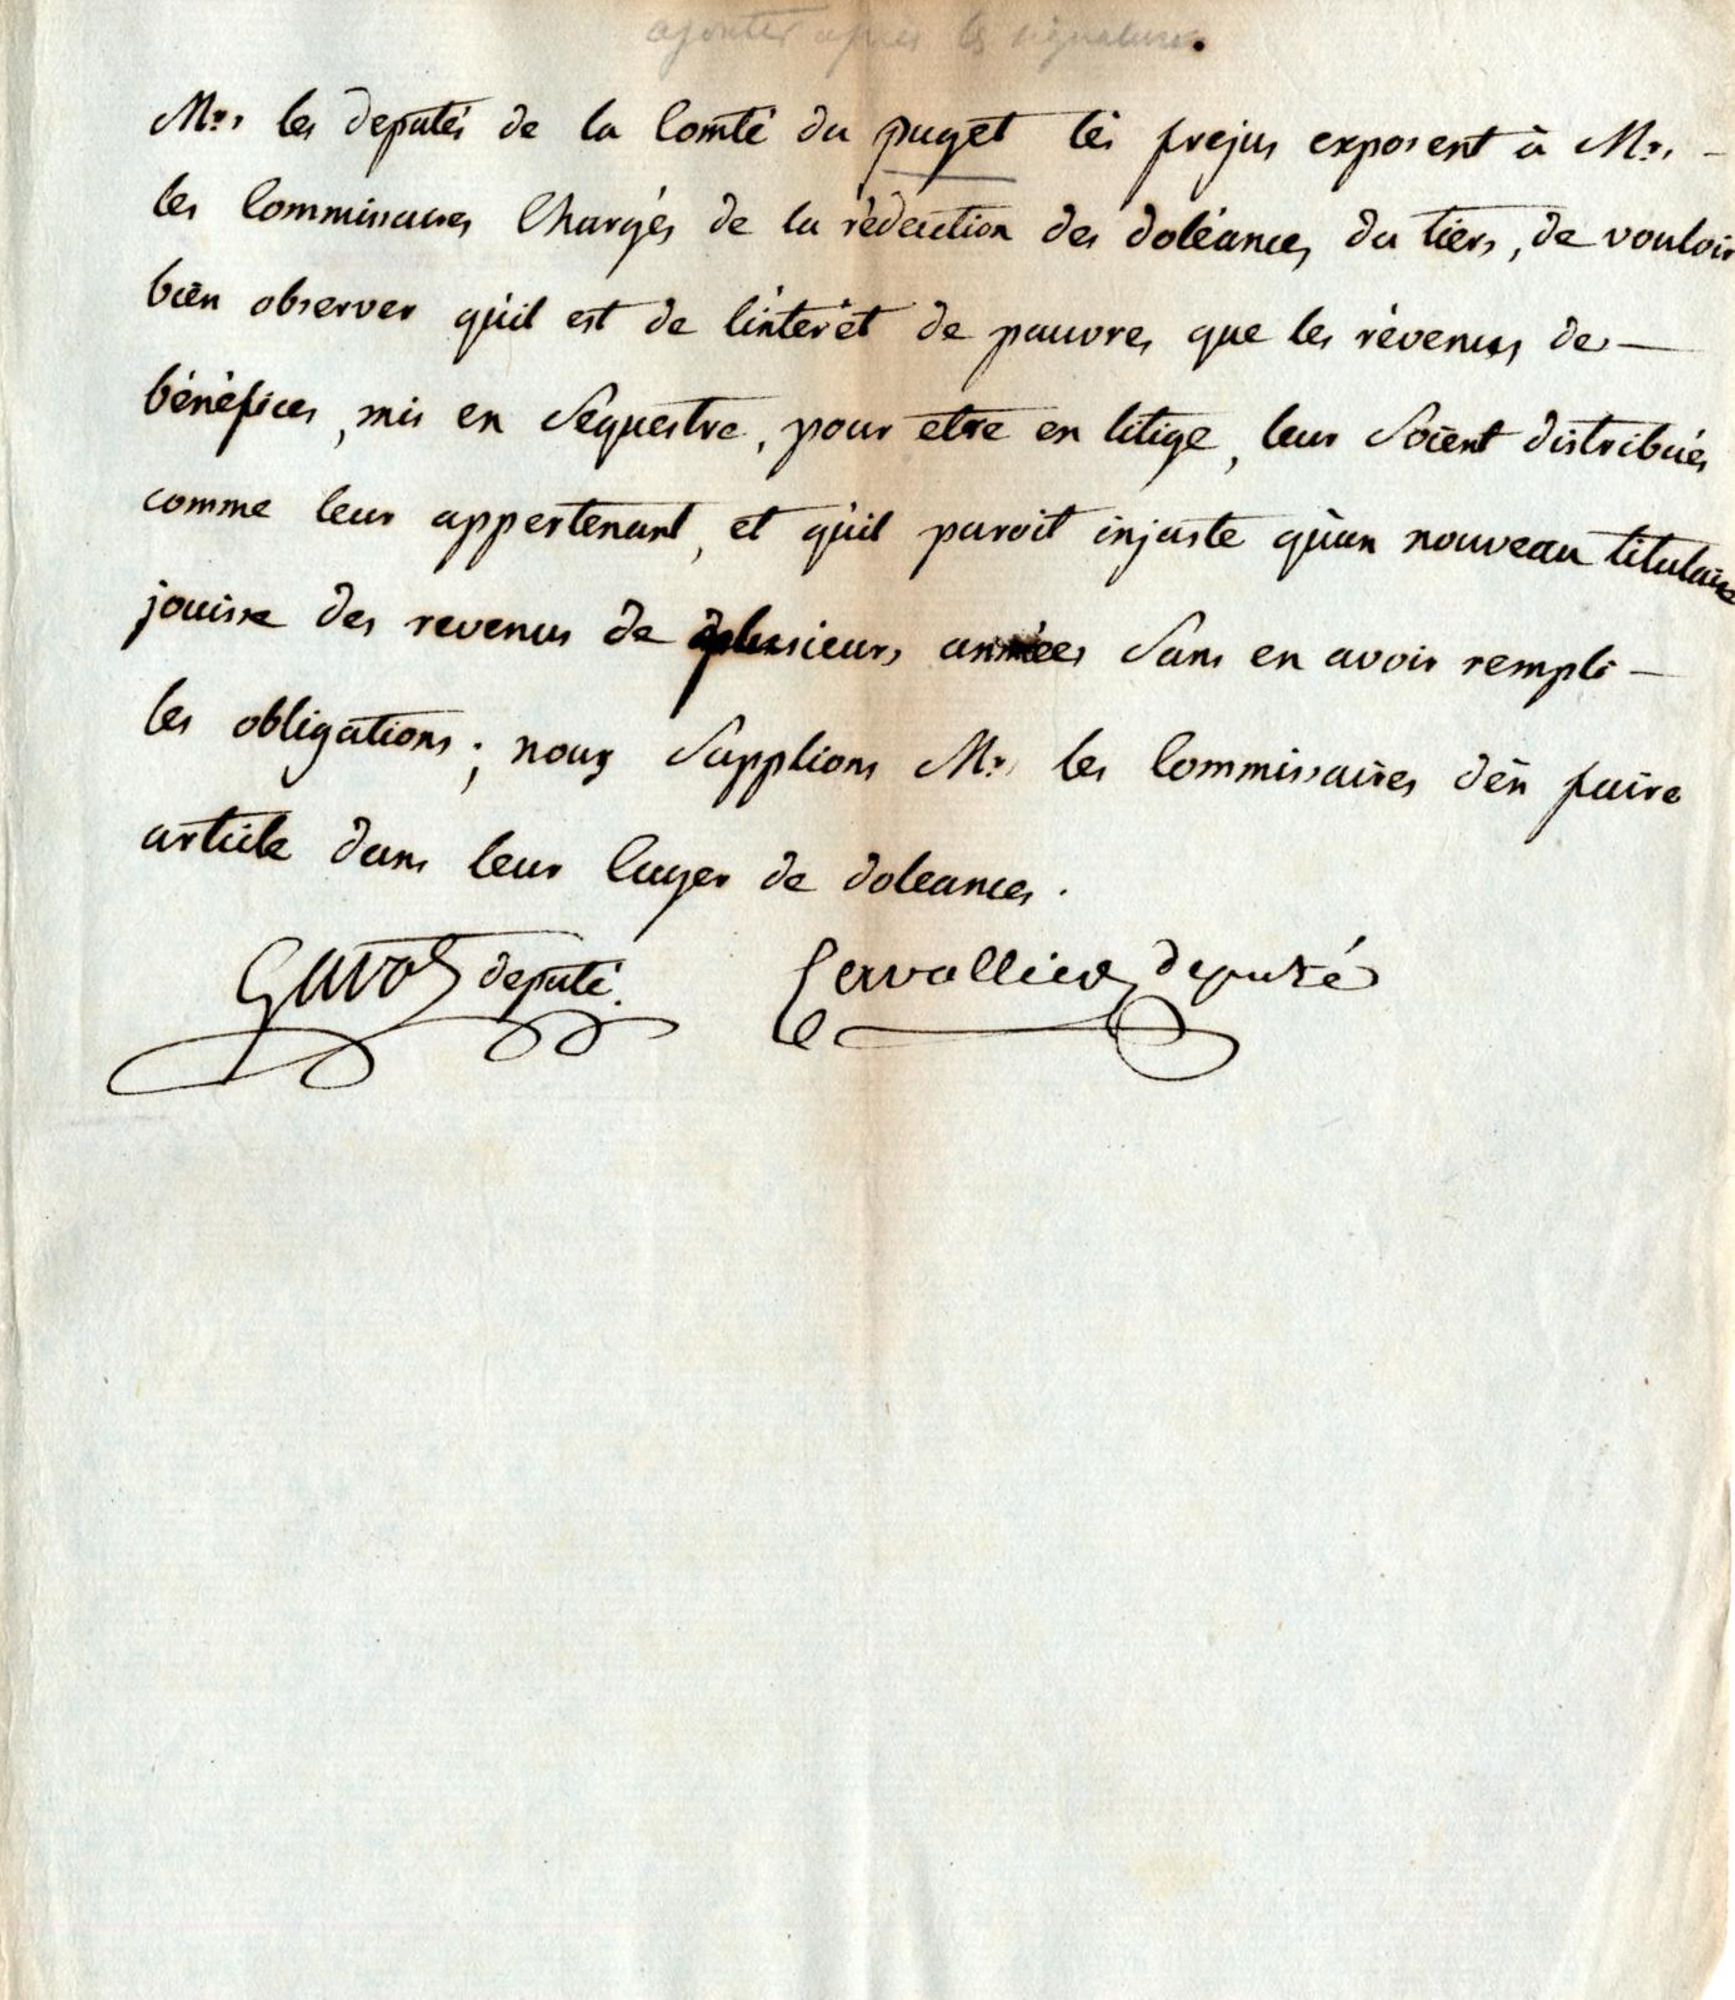 ajouter après les signatures.
Mrs. les deputés de la Comté du puget lés frejus exposent à Mrs. –
les Commissaires Chargés de la rédaction des doléances du tiers, de vouloir
bien observer q'uil est de l'intérét de pauvres que les révenus des –
bénéfices, mis en Sequestre, pour etre en litige, leur Soient distribués
comme leur appertenant, et q'uil paroit injuste qu'un nouveau titulaire
jouisse des revenus de plusieurs années Sans en avoir rempli –
les obligations; nous Supplions Mrs les Commissaires d'en faire
article dans leur Cayer de doleances.
Gavot deputé. Cavallier deputé